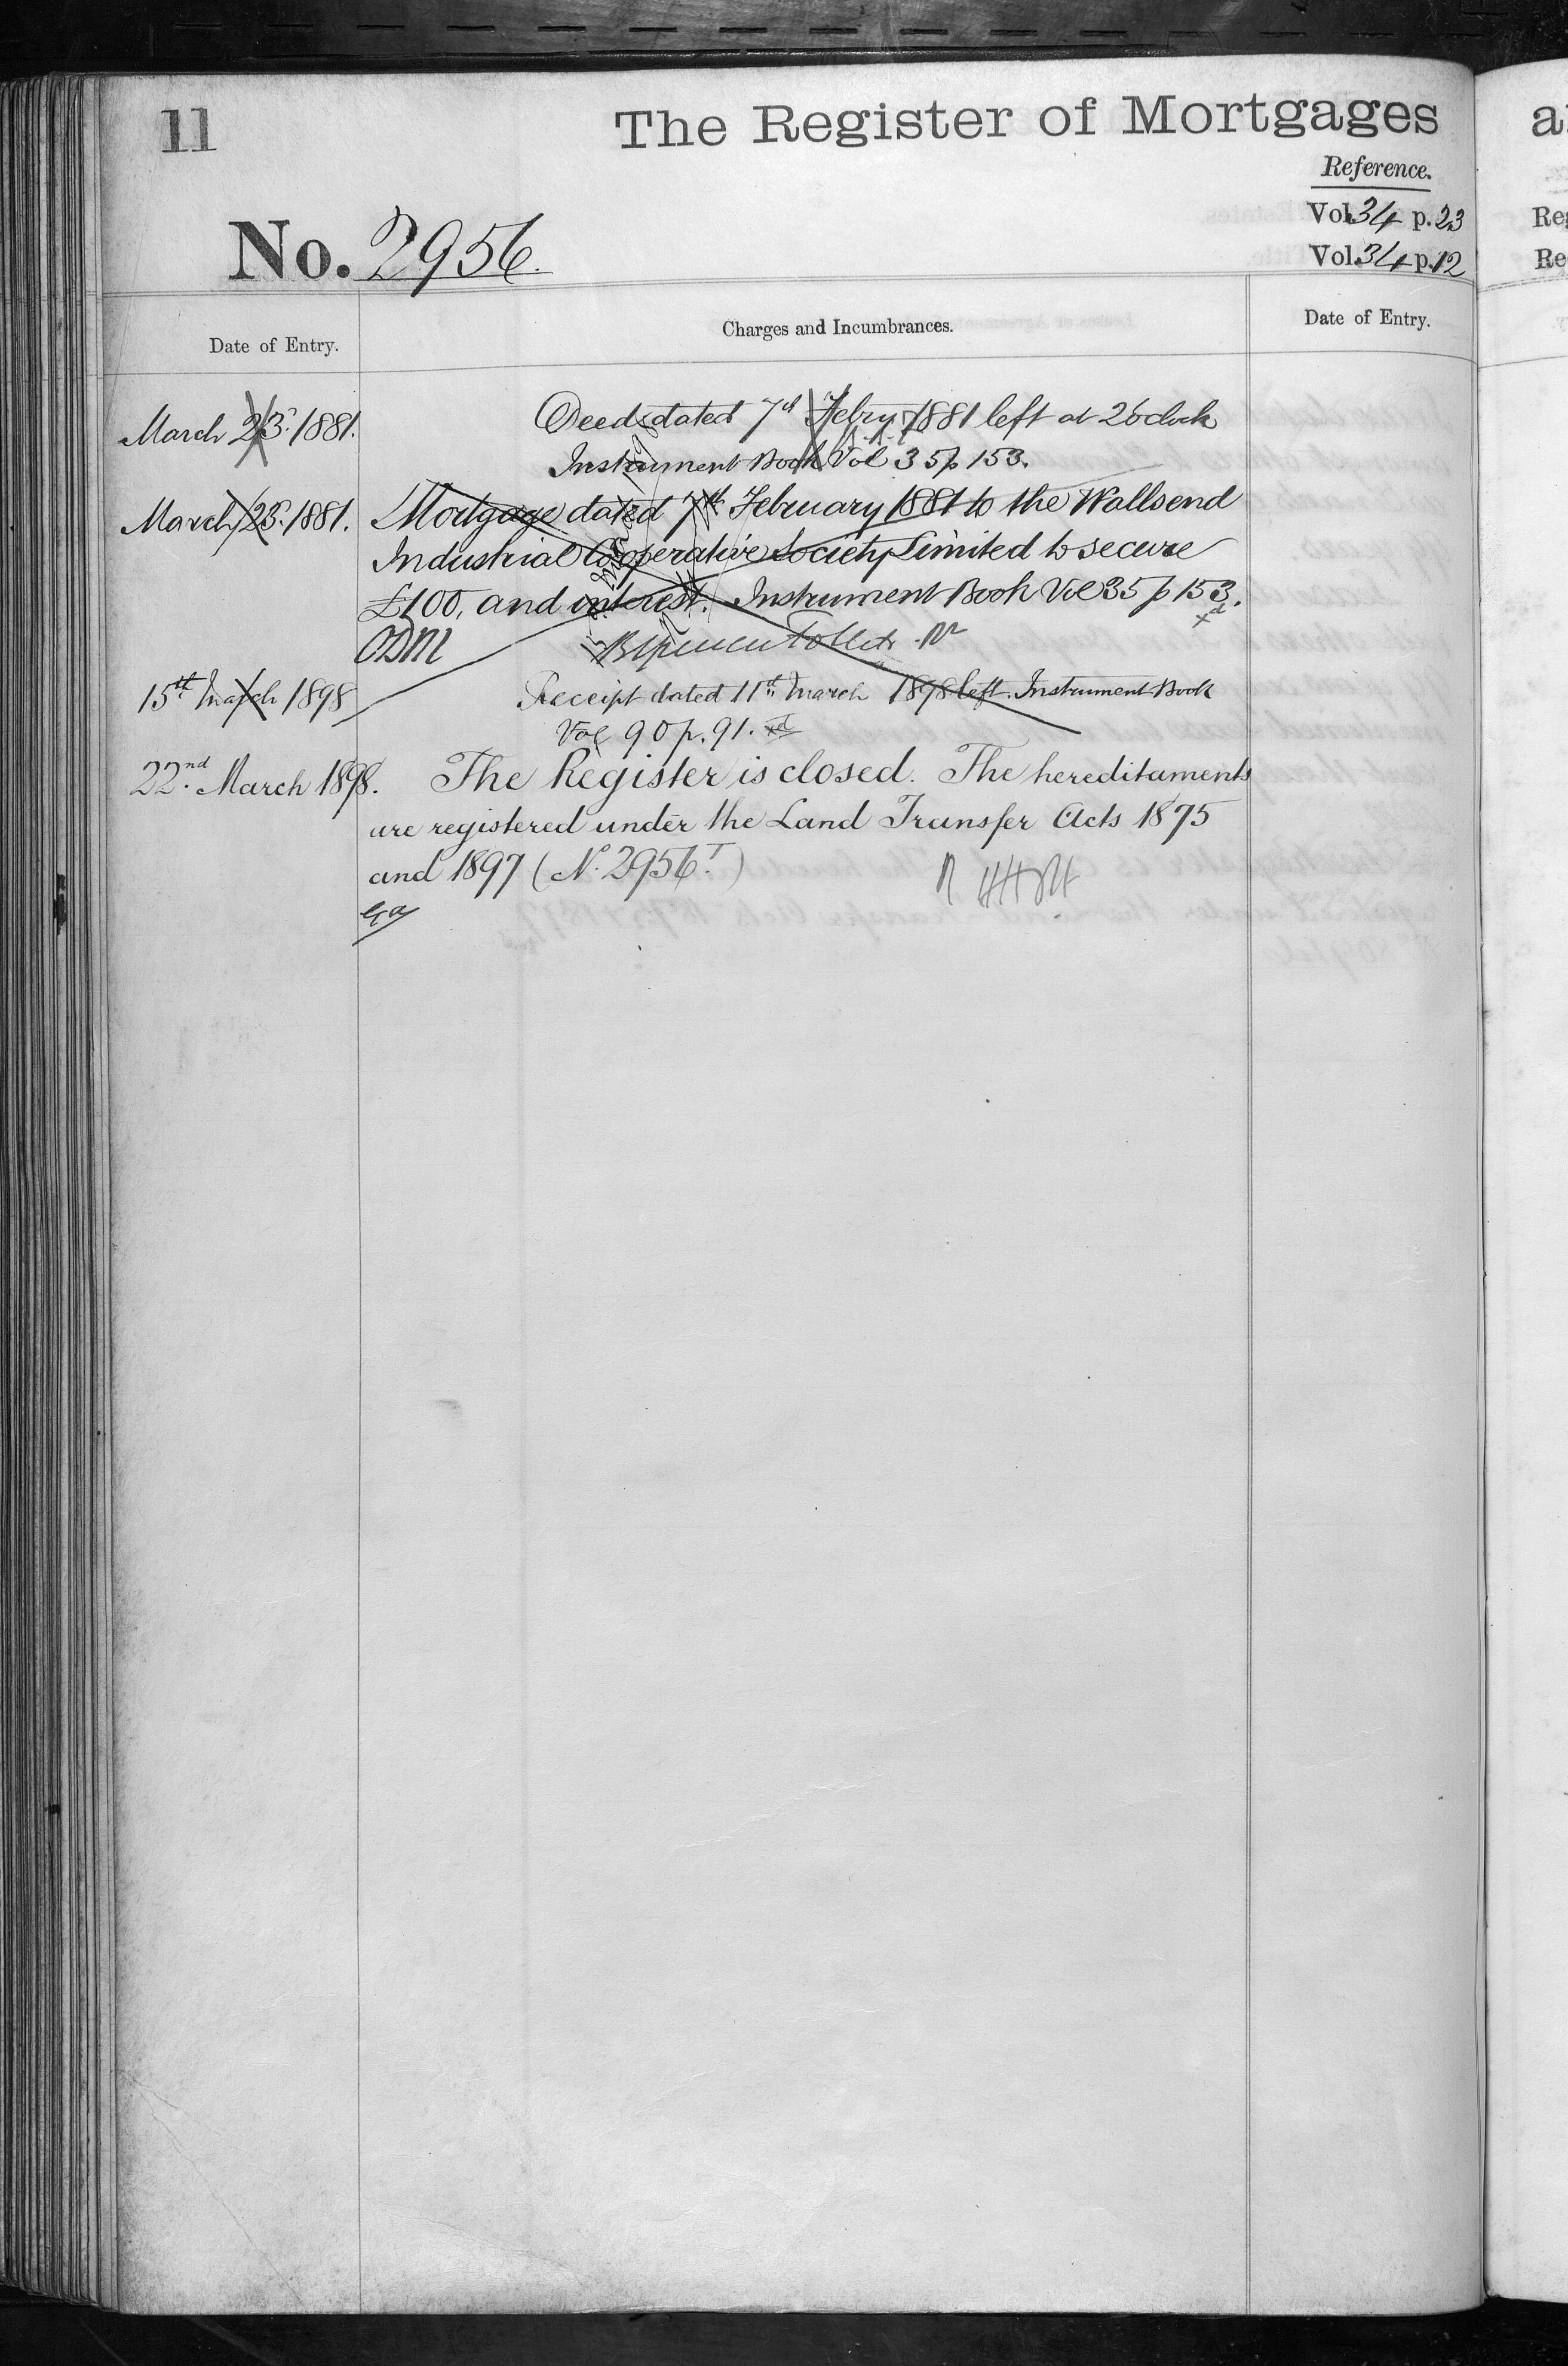 11
The Register of Mortgages
Reference.
Vol. 34 p. 23
Vol. 34 p. 12
No. 2956.
Date of Entry.
Charges and Incumbrances.
Date of Entry.
March 23. 1881. Deed dated 7th Febry 1881 left at 2 oclock
Instrument Book Vol 35 p 153.
March 23. 1881. Mortgage dated 7th February 1881 to the Wallsend
Industrial Cooperative Society Limited to secure
£100, and interest. Instrument Book Vol 35 p 153.
ODM
15th March 1898 Receipt dated 11th March 1898 left. Instrument Book
Vol 90 p. 91.
22nd March 1898. The Register is closed. The hereditaments
are registered under the Land Transfer Acts 1875
and 1897 (No. 2956T.)
a
Re
Re